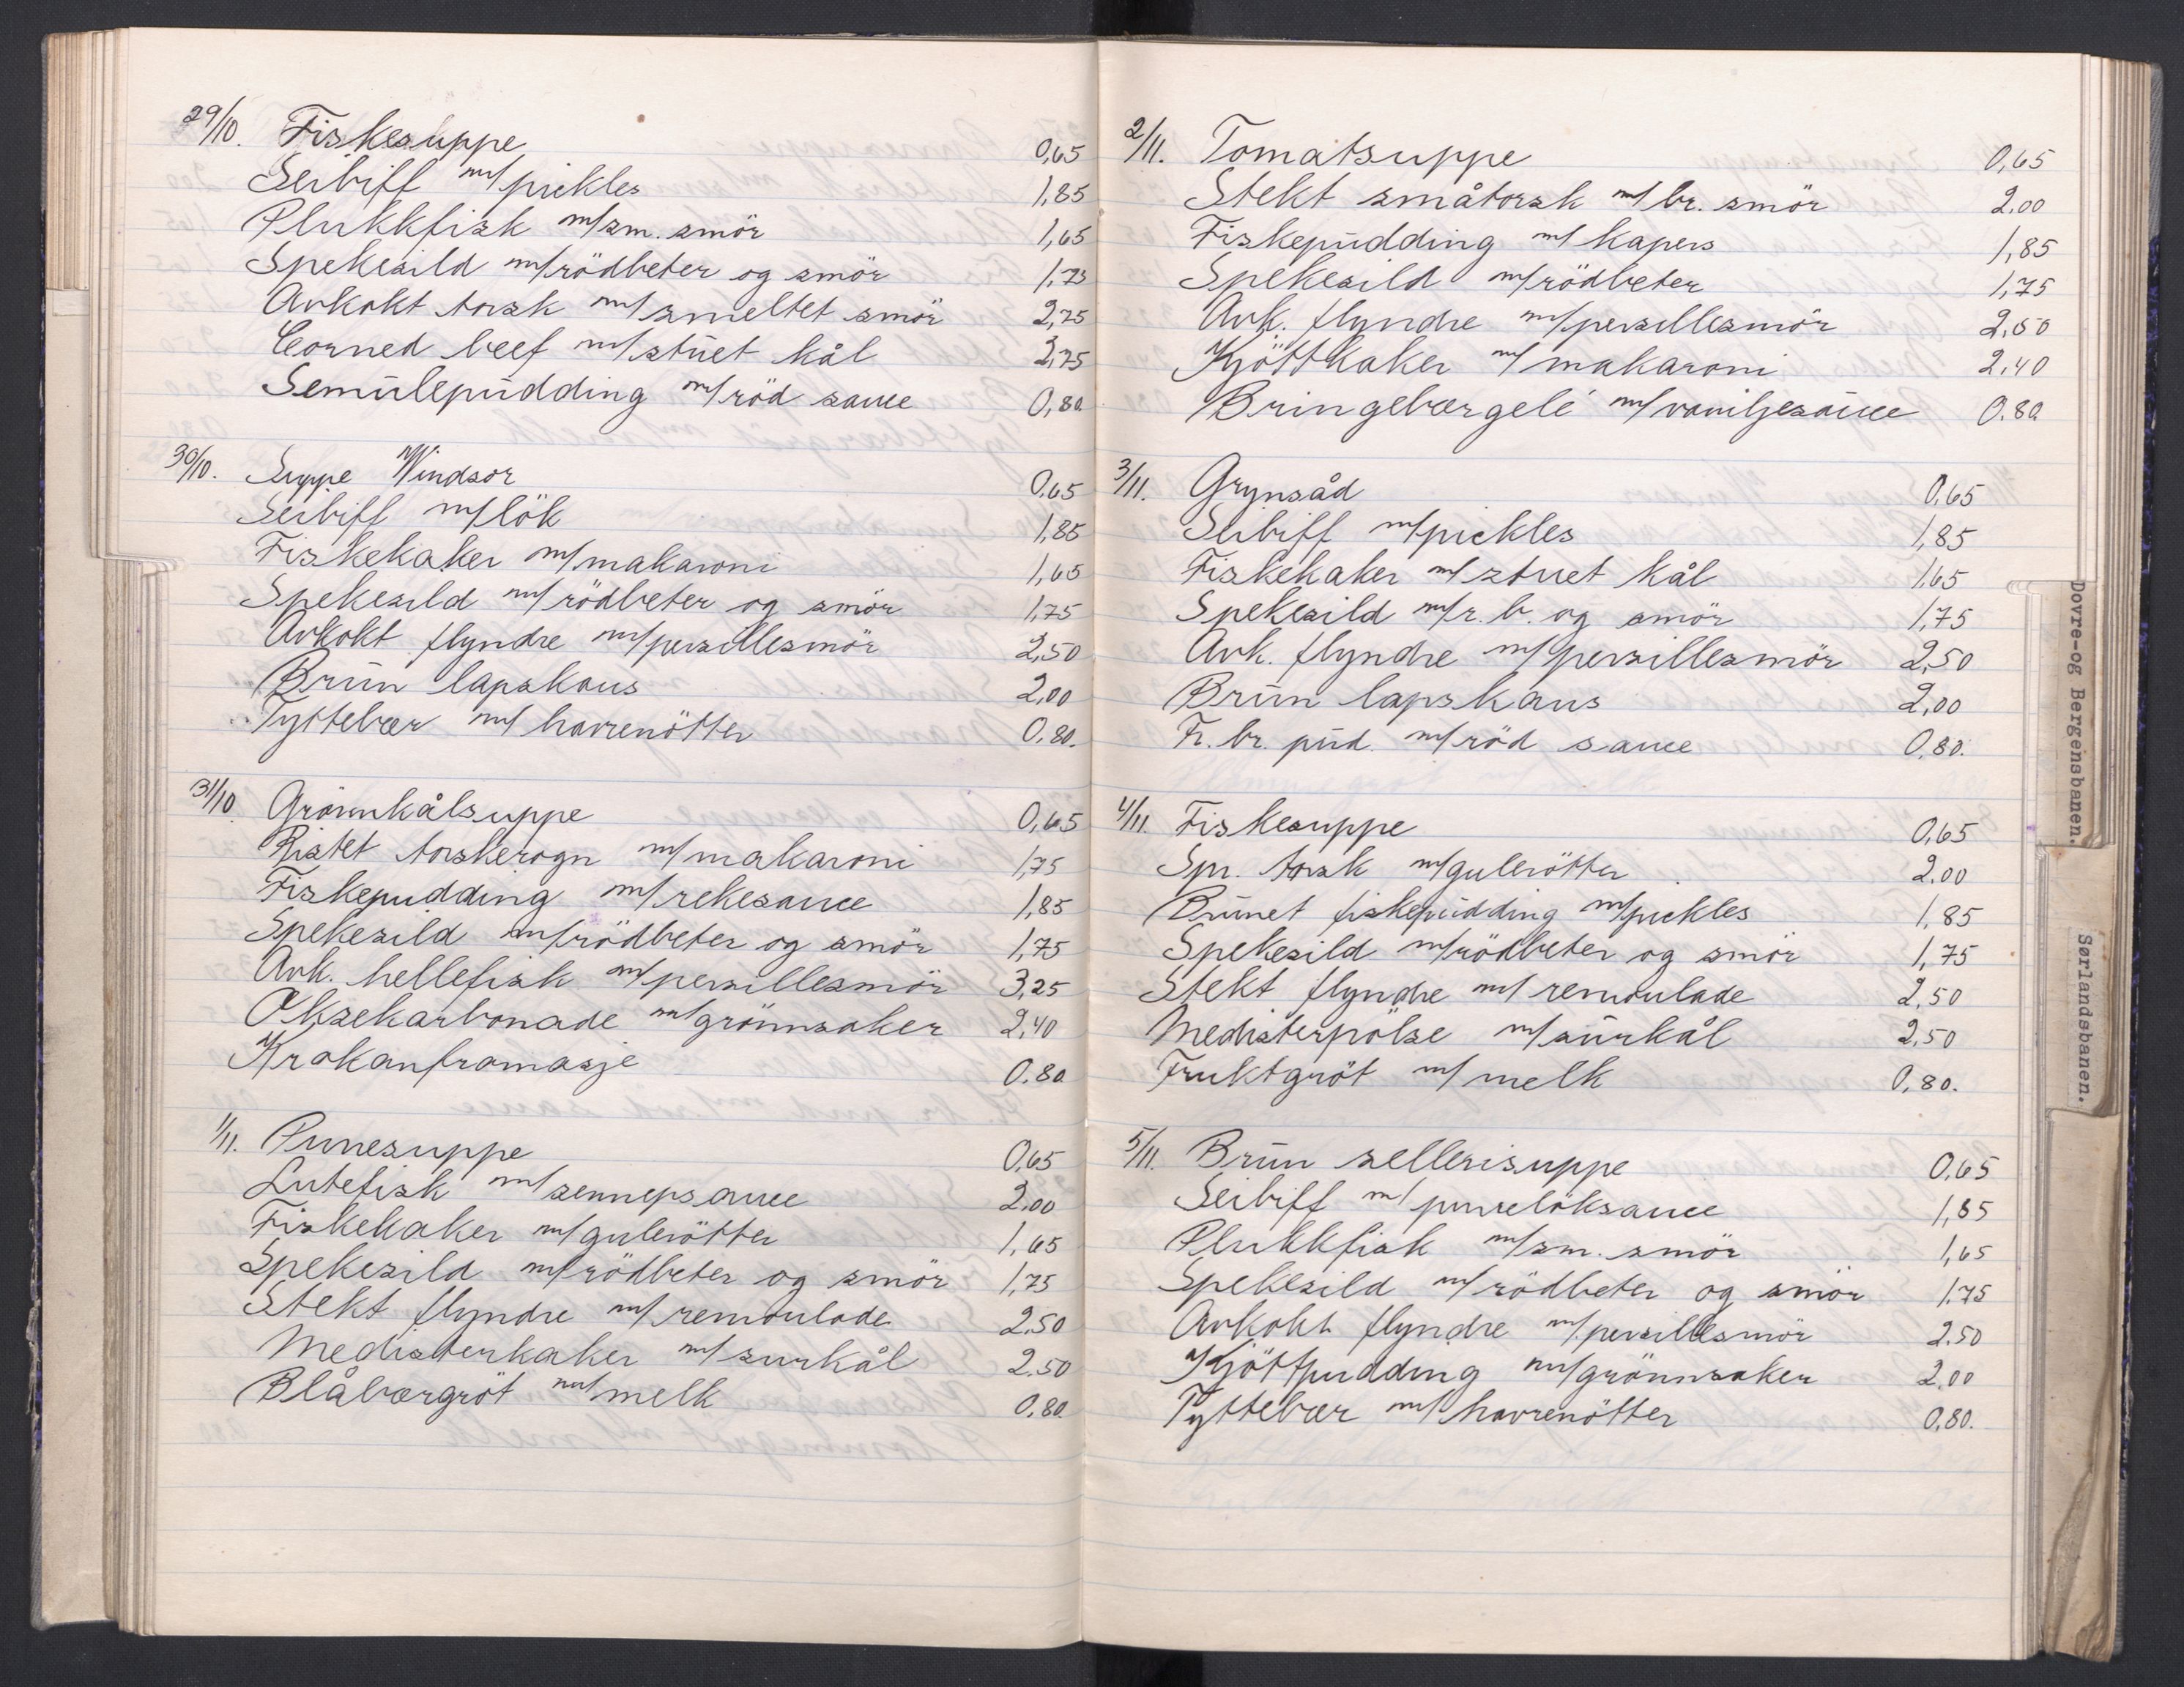 29/10. Fiskesuppe 0,65
Seibiff m/pickles 1,85
Plukkfisk m/sm. smör 1,65
Spekesild m/rödbeter og smör 1,75
Avkokt torsk m/smeltet smör 2,25
Corned beef m/stuet kål 2,25
Semulepudding m/röd sauce 0,80
30/10. Suppe Windsor 0,65
Seibiff m/lök 1,85
Fiskekaker m/makaroni 1,65
Spekesild m/rödbeter og smör 1,75
Avkokt flyndre m/persillesmör 2,50
Brun lapskaus 2,00
Tyttebær m/havrenötter 0.80.
31/10 Grönnkålsuppe 0,65
Ristet torskerogn m/makaroni 1,75
Fiskepudding m/rekesauce 1,85
Spekesild m/rödbeter og smör 1,75
Avk. hellefisk m/persillesmör 3,25
Oksekarbonade m/grönnsaker 2,40
Krokanfromasje 0.80
1/11. Purresuppe 0,65
Lutefisk m/sennepsauce 2.00
Fiskekaker m/gulerötter 1,65
Spekesild m/rödbeter og smör 1,75
Stekt flyndre m/remoulade 2.50
Medisterkaker m/surkål 2.50
Blåbærgröt m/melk 0.80.
2/11. Tomatsuppe 0,65
Stekt småtorsk m/br. smör 2.00
Fiskepudding m/kapers 1,85
Spekesild m/rödbeter 1,75
Avk. flyndre m/persillesmör 2,50
Kjöttkaker m/makaroni 2,40
Bringebærgelé m/vaniljesauce 0.80
3/11. Grynsåd 0,65
Seibiff m/pickles 1,85
Fiskekaker m/stuet kål 1,65
Spekesild m/r.b. og smör 1,75
Avk. flyndre m/persillesmör 2,50
Brun lapskaus 2,00
Fr. br. pud. m/röd sauce 0,80.
4/11. Fiskesuppe 0,65
Spr. torsk m/gulerötter 2.00
Brunet fiskepudding m/pickles 1,85
Spekesild m/rödbeter og smör 1,75
Stekt flyndre m/remoulade 2,50
Medisterpölse m/surkål 2,50
Fruktgröt m/melk 0,80.
5/11. Brun sellerisuppe 0,65
Seibiff m/purrelöksauce 1,85
Plukkfisk m/sm. smör 1,65
Spekesild m/rödbeter og smör 1.75
Avkokt flyndre m/persillesmör 2.50
Kjöttpudding m/grönnsaker 2.00
Tyttebær m/havrenötter 0,80.
Dovre-og Bergensbanen.
Sørlandsbanen.